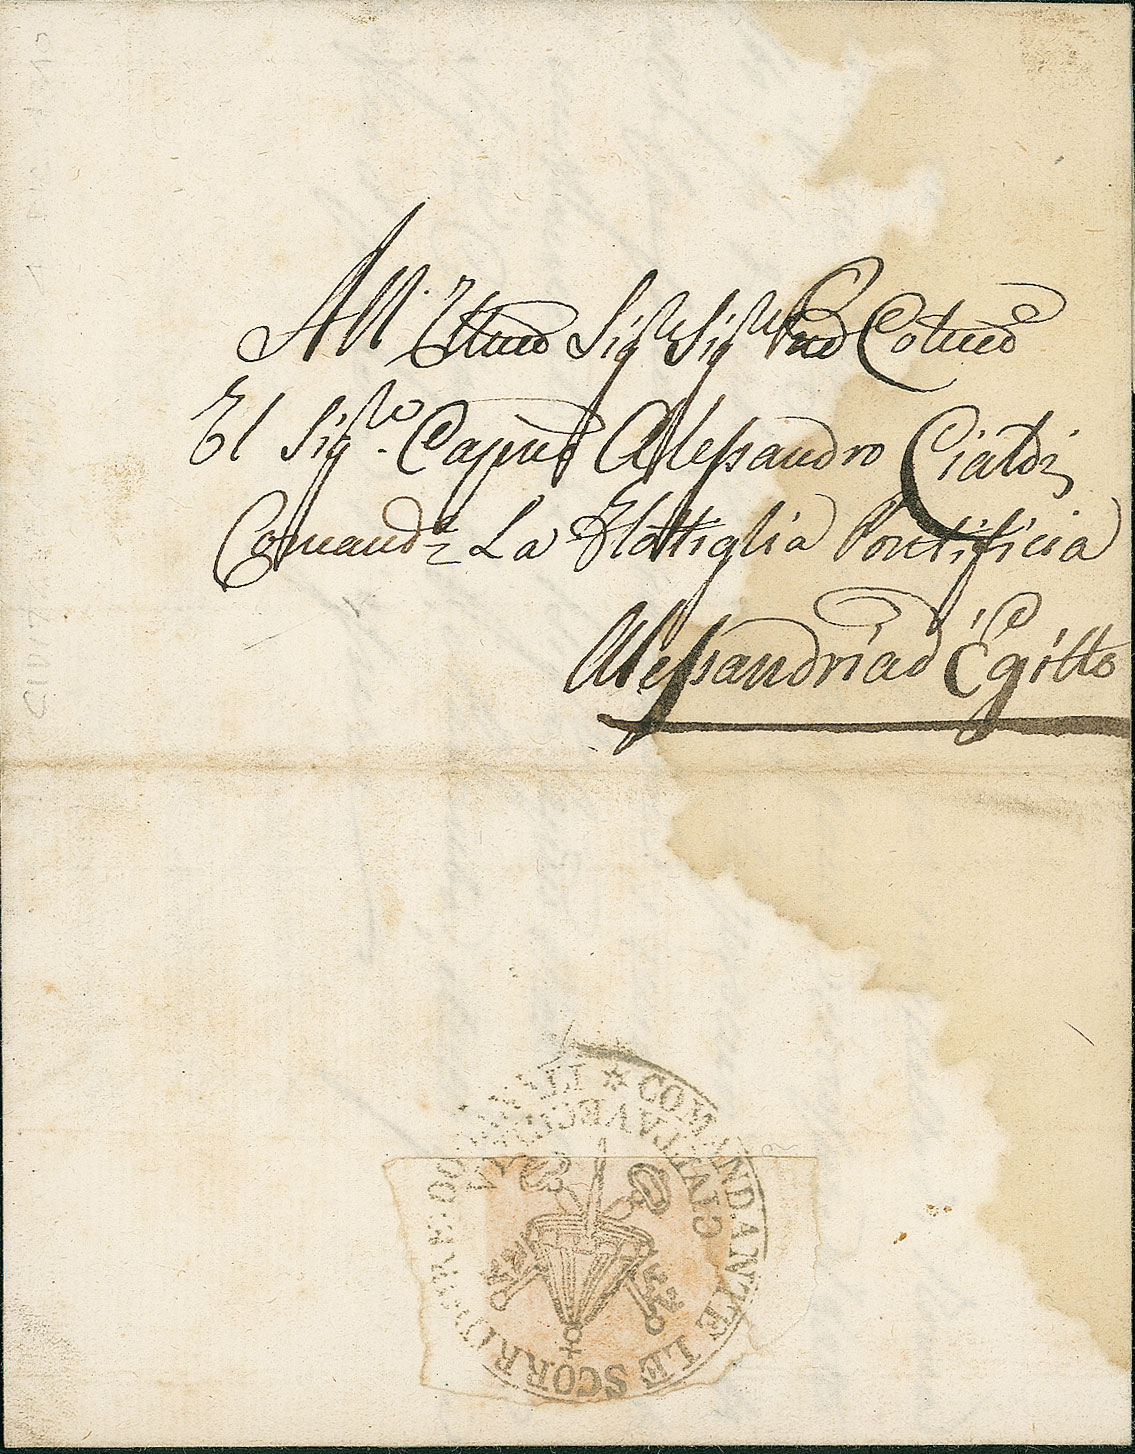 All' Illmo Sigre Sigre Prno Colmo
Il Sigre. Capno Alessandro Cialdi
Comande La Flottiglia Pontificia
Alessandria d'Egitto
* COMANDANTE LE SCORRIDORE DOGANALI
CIVITAVECCHIA